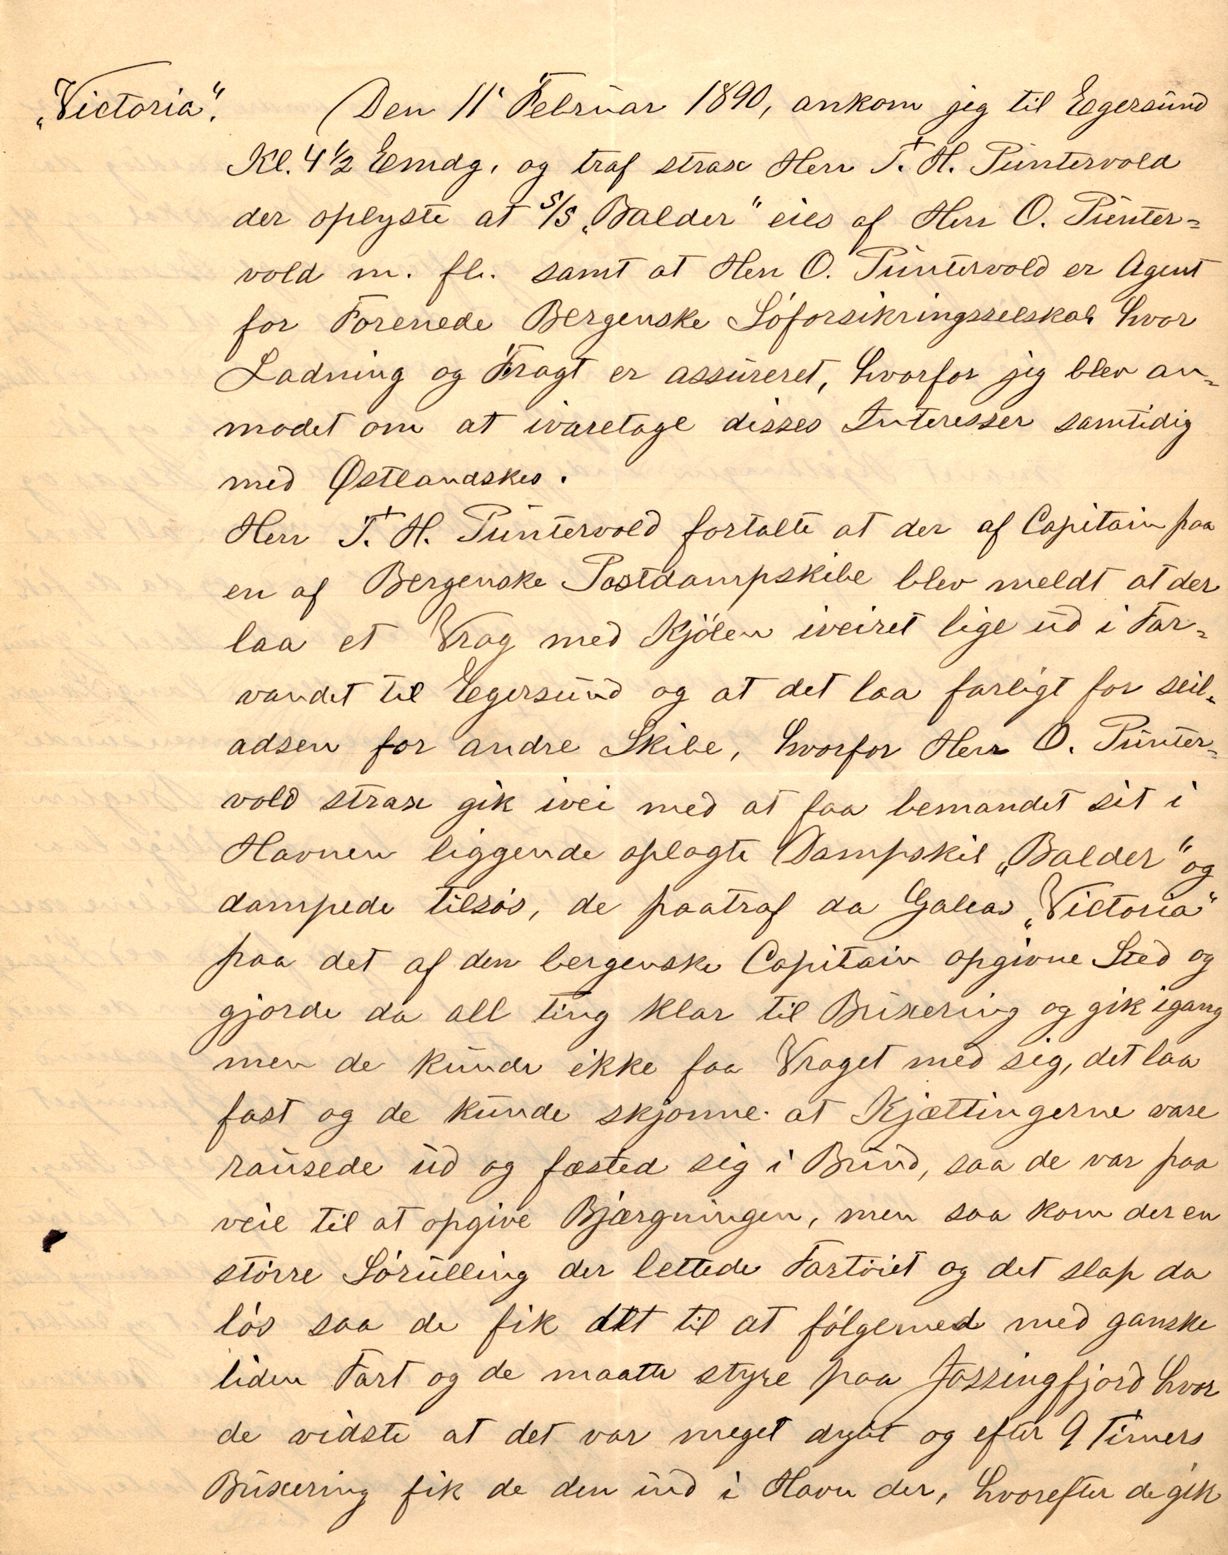 „Victoria“. Den 11' Februar 1890, ankom jeg til Egersund
Kl. 4 1/2 Emdg. og traf strax Herr T. H. Puntervold
der oplyste at S/S „Balder“ eies af Herr O. Punter=
vold m. fl. samt at Herr O. Puntervold er Agent
for Forenede Bergenske Söforsikringsselskab hvor
Ladning og Fragt er assureret, hvorfor jeg blev an=
modet om at ivaretage disses Interesser samtidig
med Østlandskes.
Herr T. H. Puntervold fortalte at der af Capitain paa
en af Bergenske Postdampskibe blev meldt at der
laa et Vrag med Kjölen iveiret lige ud i Far=
vandet til Egersund og at det laa farligt for seil=
adsen for andre Skibe, hvorfor Herr O. Punter=
vold strax gik ivei med at faa bemandet sit i
Havnen liggende oplagte Dampskib „Balder“ og
dampede tilsös, de paatraf da Galeas „Victoria“
paa det af den bergenske Capitain opgivne Sted og
gjorde da all ting klar til Buxering og gik igang
men de kunde ikke faa Vraget med sig, det laa
fast og de kunde skjonne at Kjættingerne vare
rausede ud og fæsted sig i Bund, saa de var paa
veie til at opgive Bjærgningen, men saa kom der en
större Sörulling der lettede Fartöiet og det slap da
lös saa de fik det til at fölgemed med ganske
liden Fart og de maatte styre paa Jøssingfjord hvor
de vidste at det var meget dybt og efter 9 Timers
Buxering fik de den ind i Havn der, hvorefter de gik